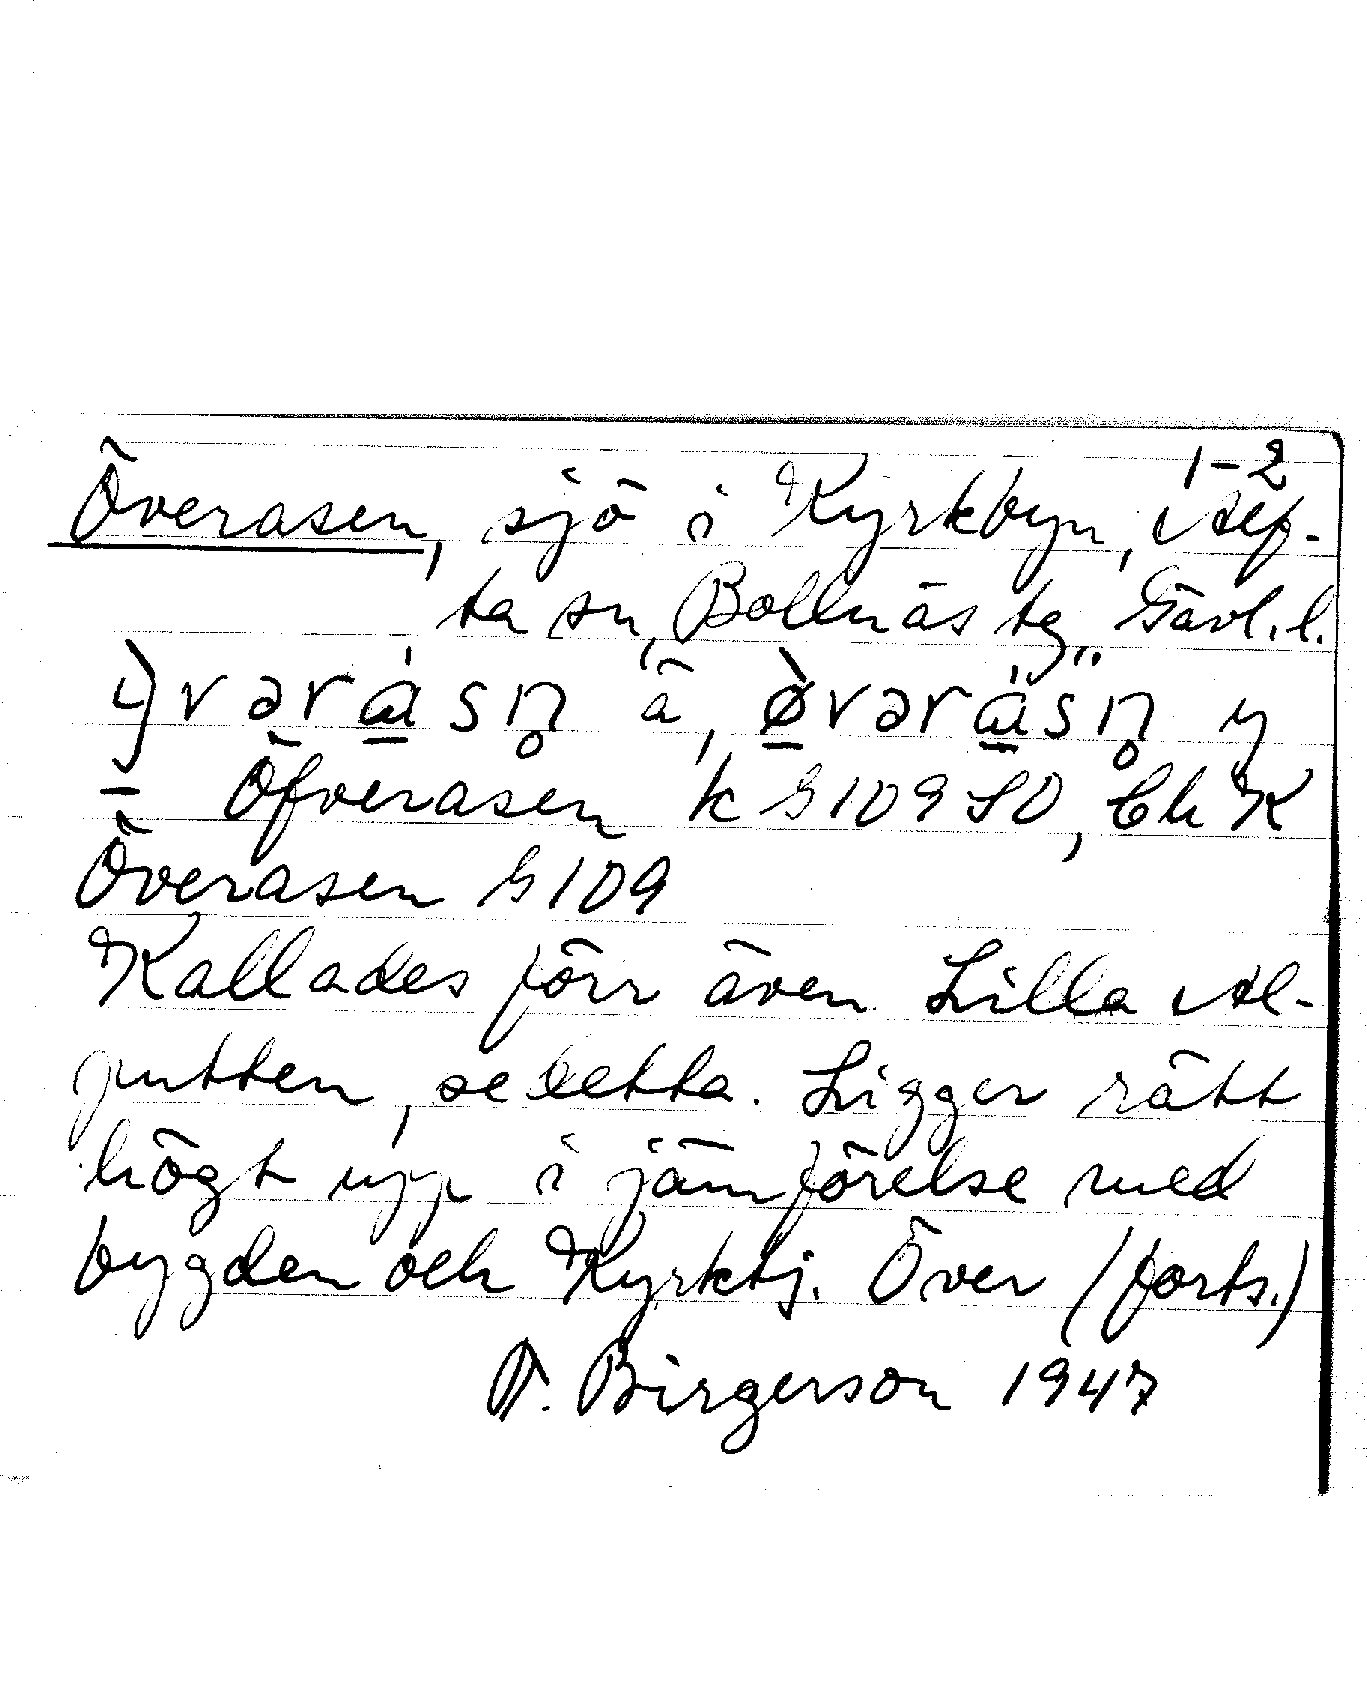 1-2
Överasen, sjö i Kyrkbyn, Alf-
ta sn, Bollnäs tg, Gävl. l.
ä, y
Öfverasen k G109 SO, Ch K
Överasen G109
Kallades förr även Lilla Al-
jutten, se detta. Ligger rätt
högt upp i jämförelse med
bygden och Kyrktj. Över (forts.)
Birgerson 1947